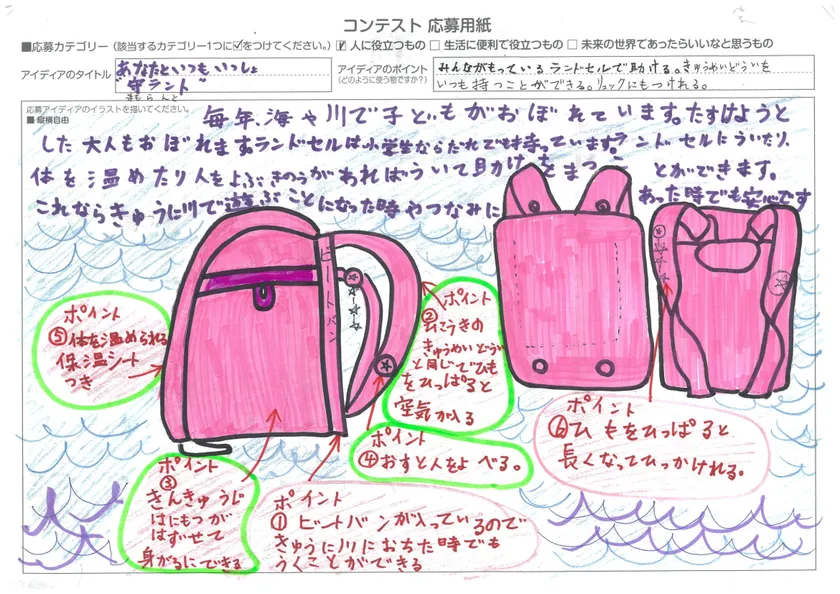 コンテスト 応募用紙
■応募カテゴリー（該当するカテゴリー1つに☑をつけてください。） ☑ 人に役立つもの □ 生活に便利で役立つもの □ 未来の世界であったらいいなと思うもの
アイディアのタイトル
あなたといつもいっしょ
守ランド
まもらんど
アイディアのポイント
（どのように使う物ですか？）
みんながもっているランドセルで助ける。きゅうめいどういを
いつも持つことができる。リュックにもつけれる。
応募アイディアのイラストを描いてください。
■ 縦横自由
毎年、海や川で子どもがおぼれています。たすけようと
した大人もおぼれます。ランドセルは小学生ならだれでも持っています。ランドセルにういたり、
体を温めたり人をよぶきのうがあればういて助けをまつことができます。
これならきゅうに川で遊ぶことになった時やつなみにあった時でも安心です
ビートバン
ポイント
⑤体を温められる
保温シート
つき
ポイント
②ひこうきの
きゅうめいどうい
と同じでひも
をひっぱると
空気が入る
ポイント
④おすと人をよべる。
ポイント
⑥ひもをひっぱると
長くなってひっかけれる。
ポイント
③
きんきゅうじ
はにもつが
はずせて
身がるにできる
ポイント
①ビートバンが入っているので
きゅうに川におちた時でも
うくことができる